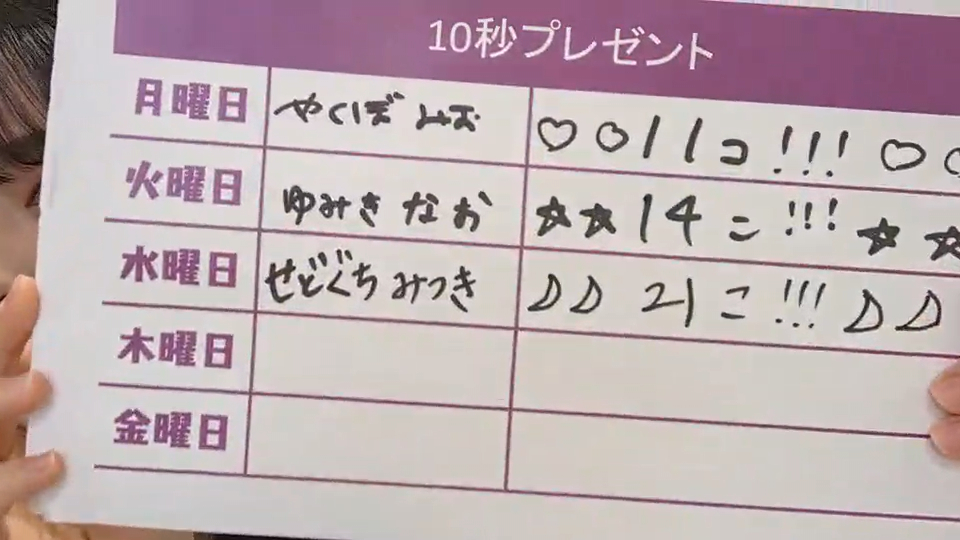 10秒プレゼント
月曜日 やくぼ みお ♡♡11コ!!!♡
火曜日 ゆみき なお ★★14こ!!!★★
水曜日 せどぐち みつき ♪♪21こ!!!♪♪
木曜日
金曜日